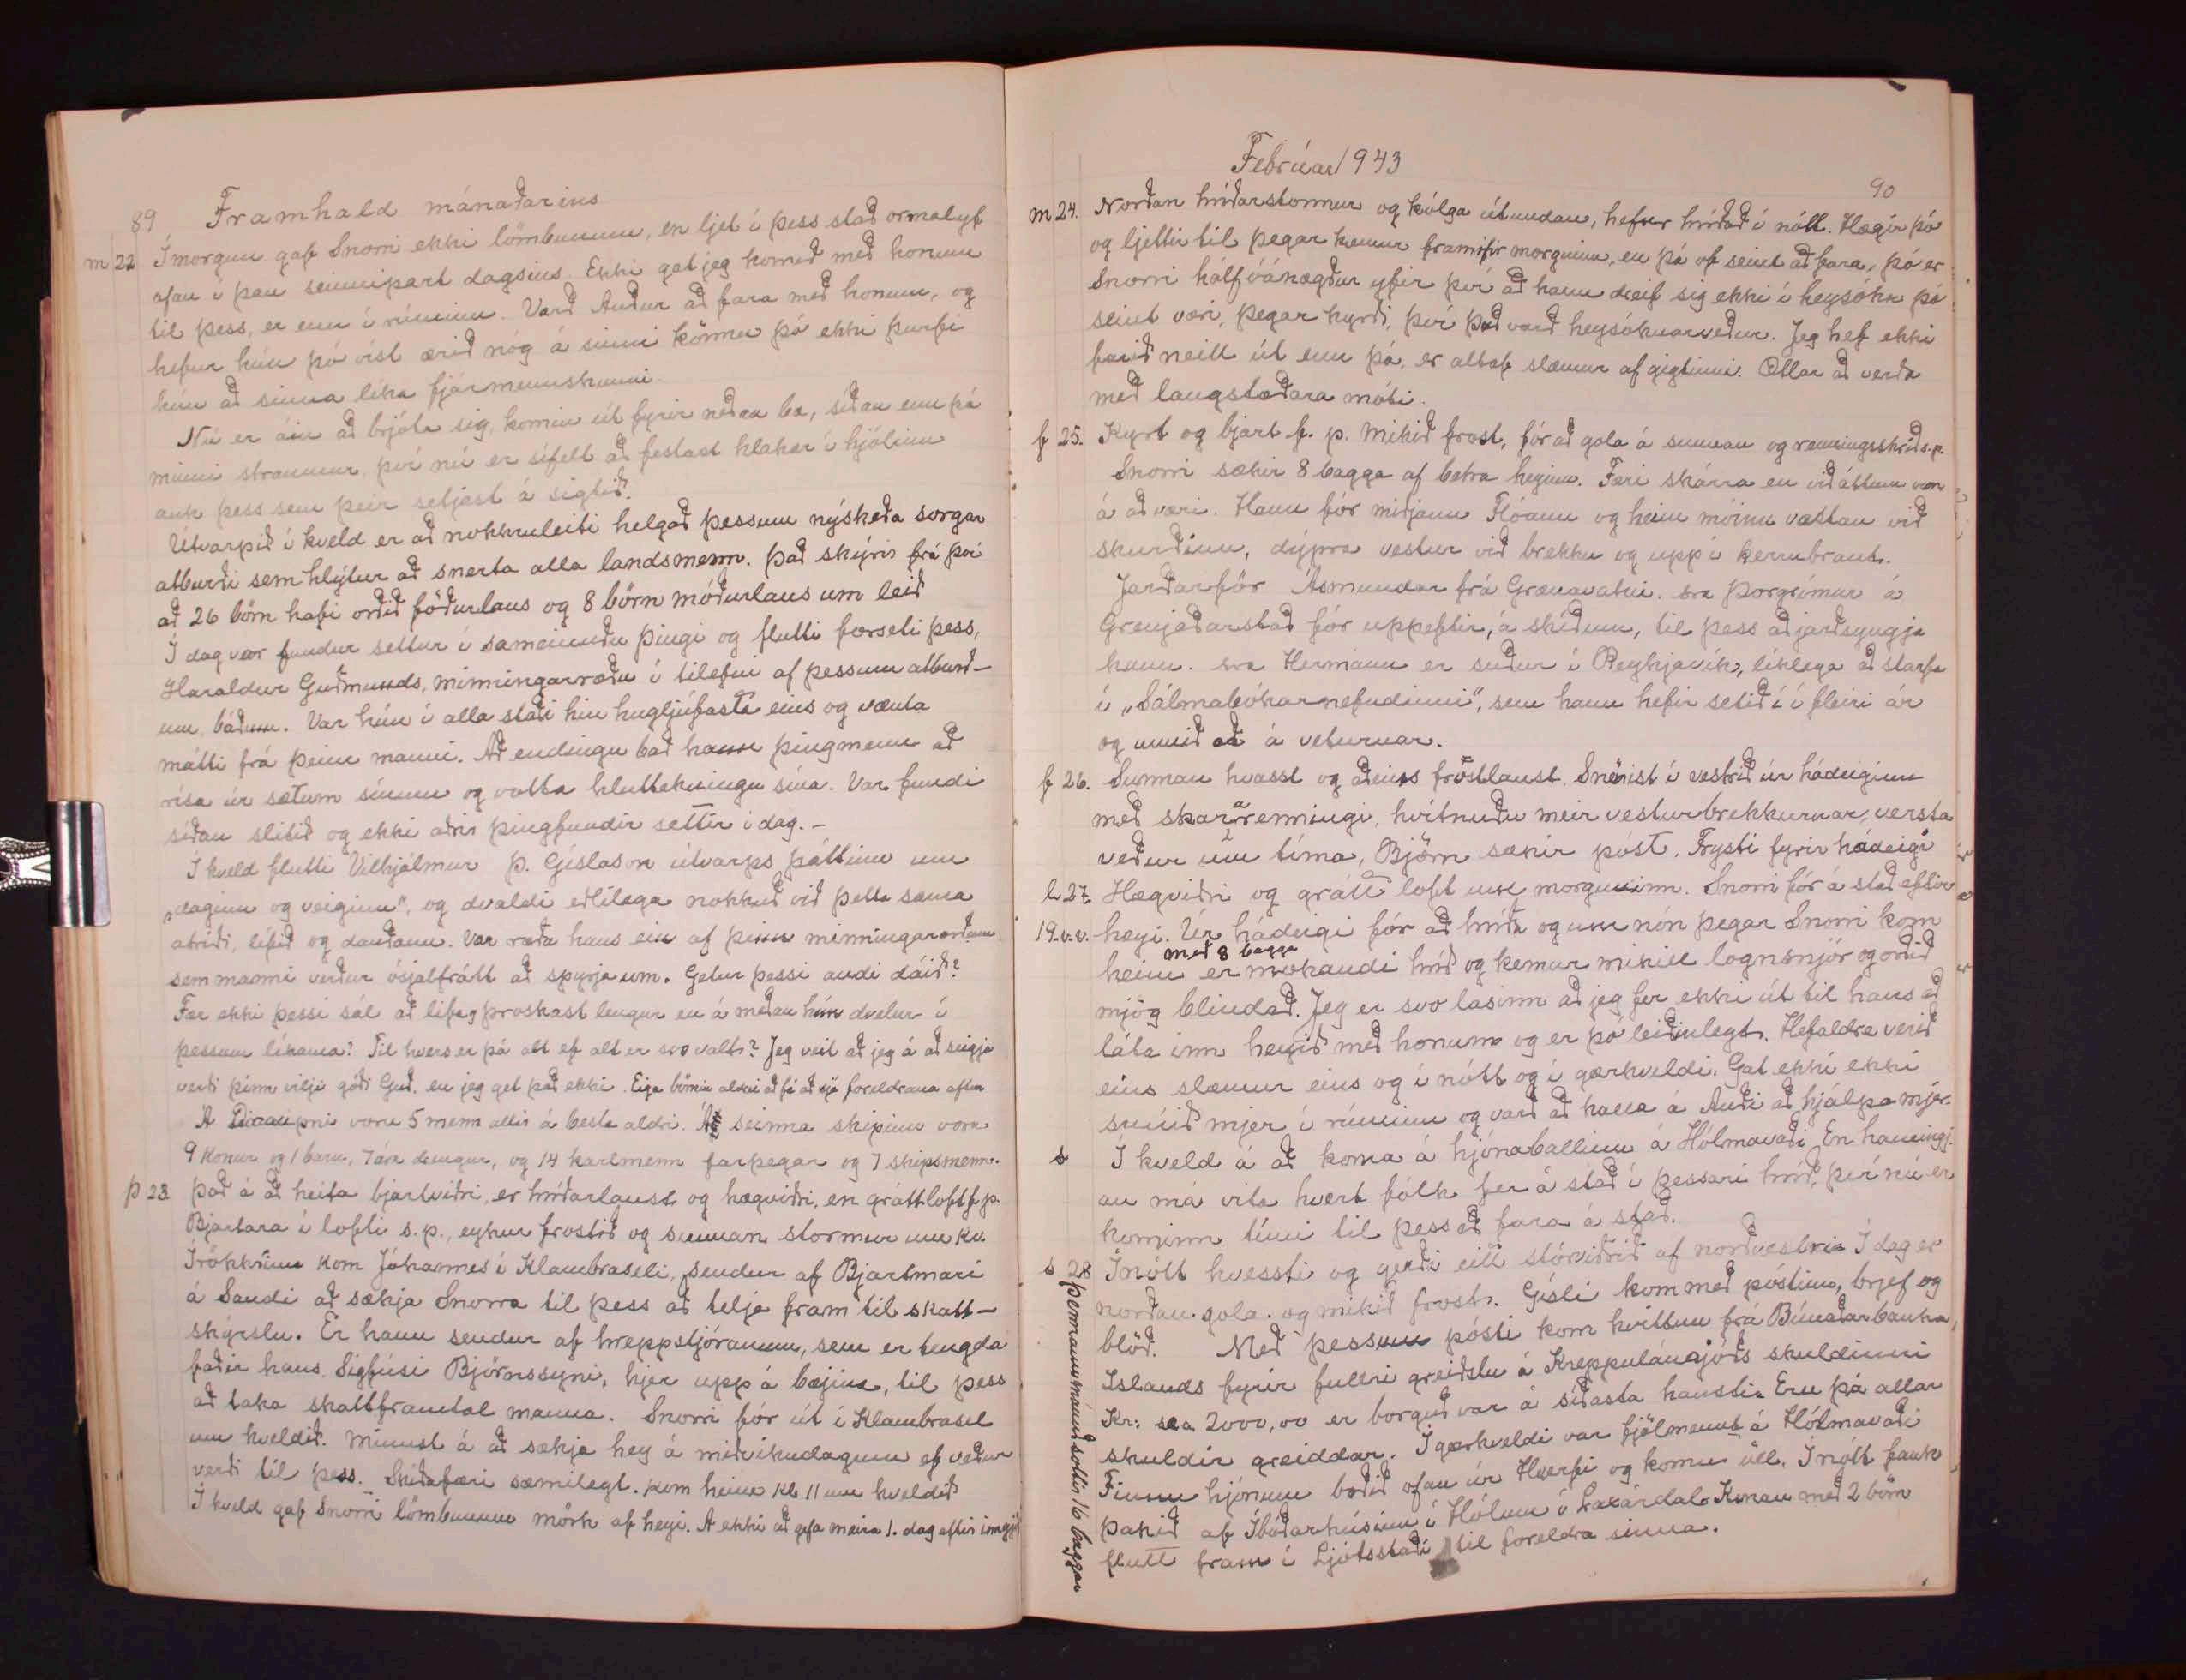 89 Framhald mánaðarins
m 22 Í morgun gaf Snorri ekki lömbunum, en ljet í þess stað ormalyf
ofan í þau seinnipart dagsins. Ekki gat jeg komið með honum
til þess, er enn í rúminu. Varð Auður að fara með honum, og
hefur hún þó víst ærið nóg á sinni könnu þó ekki þurfi
hún að sinna líka fjármennskunni.
Nú er áin að brjóta sig, komin út fyrir neðan bæ, síðan enn þá
minni straumur, því nú er sífelt að festast klakar í hjólinu
auk þess sem þeir setjast á sigtið.
Útvarpið í kveld er að nokkruleiti helgað þessum nýskeða sorgar
atburði sem hlýtur að snerta alla landsmenn. Það skýrir frá því
að 26 börn hafi orðið föðurlaus og 8 börn móðurlaus um leið
Í dag var fundur settur í sameinuðu þingi og flutti forseti þess,
Haraldur Guðmunds, minningarræðu í tilefni af þessum atburð-
um báðum. Var hún í alla staði hin hugljúfasta eins og vænta
mátti frá þeim manni. Að endingu bað hann þingmenn að
rísa úr sætum sínum og votta hluttekningu sína. Var fundi
síðan slitið og ekki aðrir þingfundir settir í dag. -
Í kveld flutti Vilhjálmur Þ. Gíslason útvarps þáttinn um
„daginn og veiginn", og dvaldi eðlilega nokkuð við þetta sama
atriði, lífið og dauðann. Var ræða hans ein af þeim minningarorðum
sem manni verður ósjalfrátt að spyrja um. Getur þessi andi dáið?
Fær ekki þessi sál að lifa og þroskast lengur en á meðan hún dvelur í
þessum líkama? Til hvers er þá alt ef alt er svo valt? Jeg veit að jeg á að seigja
verði þinn vilji góði Guð. en jeg get það ekki. Eiga börnin aldrei að fá að sjá foreldrana aftur
Á voru 5 menn allir á besta aldri. Á seinna skipinu voru
9 konur og 1 barn, 7 ára drengur, og 14 karlmenn farþegar og 7 skipsmenn.
þ 23 Það á að heita bjartviðri, er hríðarlaust og hægviðri, en gráttloft f.p.
Bjartara í lofti s.p., eykur frostið og sunnan stormur um kv.
Í rökkrinu kom Jóhannes í Klambraseli, sendur af Bjartmari
á Sandi að sækja Snorra til þess að telja fram til skatt-
skýrslu. Er hann sendur af hreppstjóranum, sem er tengda
faðir hans Sigfúsi Björnssyni, hjer upp á bæjina, til þess
að taka skattframtal manna. Snorri fór út í Klambrasel
um kveldið. Minnst á að sækja hey á miðvikudaginn ef veður
verði til þess. Skíðafæri sæmilegt. kom heim kl 11 um kveldið
Í kveld gaf Snorri lömbunum mörk af heyi. Á ekki að gefa meira 1. dag eftir inngjöf
Febrúar 1943
90
m 24. Norðan hríðarstormur og kólga útundan, hefur hríðað í nótt. Hægir þó
og ljettir til þegar kemur framifir morguninn, en þá of seint að fara, þó er
Snorri hálfóánægður yfir því að hann dreif sig ekki í heysókn þó
seint væri, þegar kyrði, því það varð heysóknarveður. Jeg hef ekki
farið neitt út enn þá, er altaf slæmur af gigtinni. Ætlar að verða
með langstæðara móti.
f 25. Kyrt og bjart f. p. Mikið frost, fór að gola á sunnan og renningsskrið s.p.
Snorri sækir 8 bagga af betra heyinu. Færi skárra en við áttum von
á að væri. Hann fór miðjann Flóann og heim móinn vestan við
skurðinn, dýpra vestur við brekku og upp í kerrubraut.
Jarðarför Ásmundar frá Grænavatni. sra Þorgrímur á
Grenjaðarstað fór uppeftir, á skíðum, til þess að jarðsyngja
hann. sra Hermann er suður í Reykjavík, líklega að starfa
í „Sálmabókarnefndinni", sem hann hefir setið í í fleiri ár
og unnið að á veturnar.
f 26. Sunnan hvasst og aðeins frostlaust. Snérist í vestrið úr hádeiginu
með skararenningi, hvítnuðu meir vesturbrekkurnar, versta
veður um tíma, Björn sækir póst. Frysti fyrir hádeigi
l 27. Hægviðri og grátt loft um morguninn. Snorri fór á stað eftir
19. v.v. heyi. Úr hádeigi fór að hríða og um nón þegar Snorri kom
með 8 bagga
heim er mokandi hríð og kemur mikill lognsnjór og orðið
mjög blindað. Jeg er svo lasinn að jeg fer ekki út til hans að
láta inn heyið með honum og er þó leiðinlegt. Hef aldrei verið
eins slæmur eins og í nótt og í gærkveldi. Gat ekki ekki
snúið mjer í rúminu og varð að kalla á Auði að hjálpa mjer.
s Í kveld á að koma á hjónaballinu á Hólmavaði. En hamingj-
an má vita hvert fólk fer á stað í þessari hríð, því nú er
kominn tími til þess að fara á stað.
s 28 Í nótt hvessti og gerði eitt stórviðrið af norðvestri. Í dag er
norðan gola. og mikið frost. Gísli kom með póstinn, brjef og
blöð. Með þessum pósti kom kvittun frá Búnaðarbanka
Islands fyrir fullri greiðslu á Kreppulánasjóðs skuldinni
Kr: sea 2000,00 er borguð var á síðasta hausti. Eru þá allar
skuldir greiddar. Í gærkveldi var fjölmennt á Hólmavaði
Fimm hjónum boðið ofan úr Hverfi og komu öll. Í nótt fauk
þakið af Íbúðarhúsinu í Hólum í Laxárdal. Konan með 2 börn
flutt fram í Ljótsstaði til foreldra sinna.
þennann mánuð sóttir 16 baggar